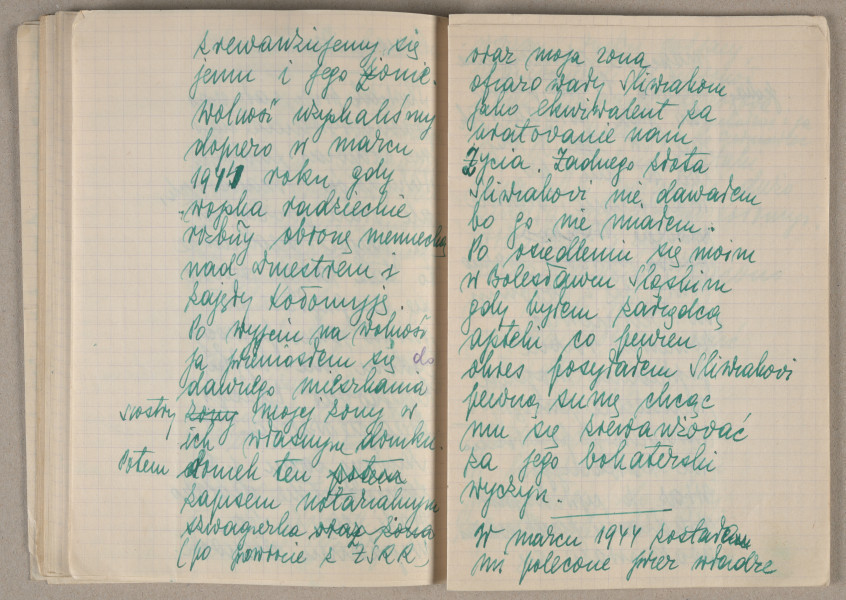 zrewanżujemy się
jemu i jego żonie.
Wolność uzyskaliśmy
dopiero w marcu
1944 roku gdy
wojska radzieckie
rozbiły obronę niemiecką
nad Dniestrem i
zajęły Kołomyję.
Po wyjściu na wolność
ja przeniosłem się do
dawnego mieszkania
siostry żony mojej żony w
ich własnym domku.
Potem domek ten potem
zapisem notarialnym
szwagierka oraz żona
(po powrocie z ZSRR)
oraz moja żona
ofiarowały Śliwiakom
jako ekwiwalent za
uratowanie nam
Życia. Żadnego złota
Śliwiakowi nie dawałem
bo go nie miałem.
Po osiedleniu się moim
w Bolesławcu Śląskim
gdy byłem zarządcą
apteki co pewien
okres posyłałem Śliwiakowi
pewną sumę chcąc
mu się zrewanżować
za jego bohaterski
wyczyn.
W marcu 1944 została
mi polecone przez władze